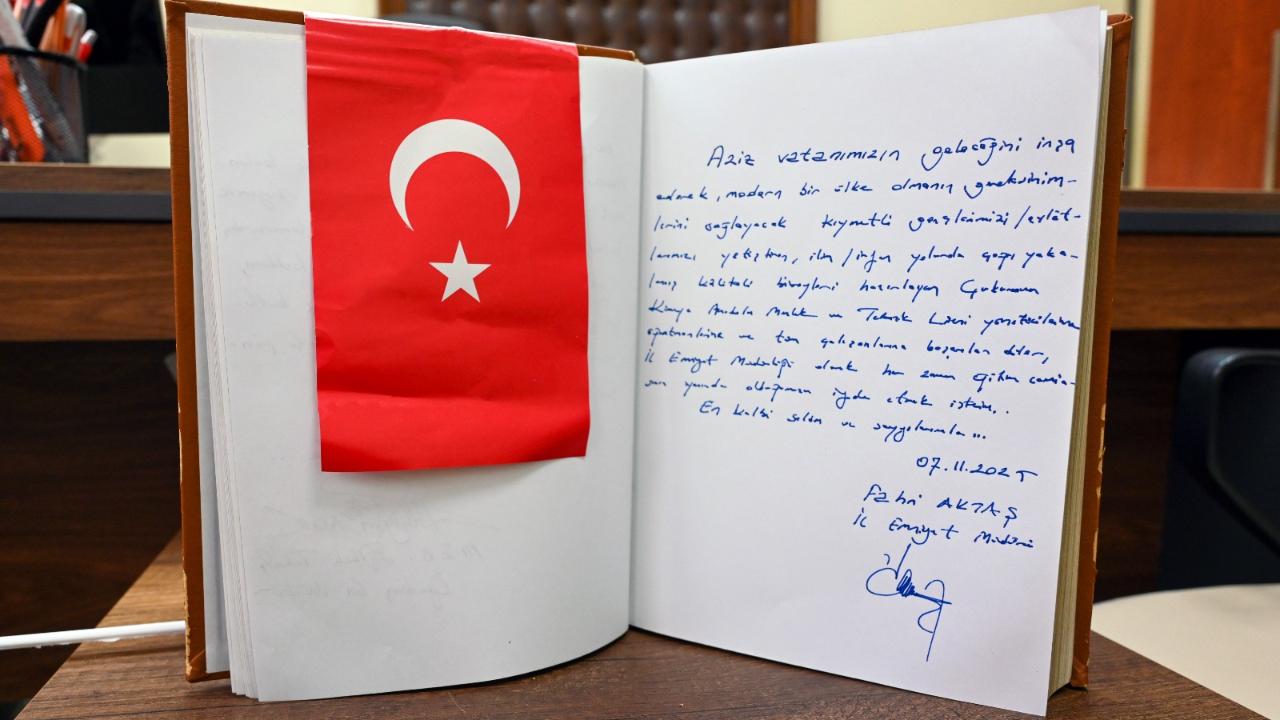 Aziz vatanımızın geleceğini inşa
ederek, modern bir ülke olmanın gereksinim-
lerini sağlayacak kıymetli gençlerimizi/evlât-
larımızı yetiştiren, ilim/irfan yolunda çağı yaka-
lamış kaliteli bireyleri hazırlayan Çukurova
Kimya Anadolu Meslek ve Teknik Lisesi yöneticilerine
öğretmenlerine ve tüm çalışanlarına başarılar diler,
İl Emniyet Müdürlüğü olarak her zaman eğitim camia-
sının yanında olduğumuzu ifade etmek isterim..
En kalbi selam ve saygılarımla...
07.11.2025
Fahri AKTAŞ
İl Emniyet Müdürü